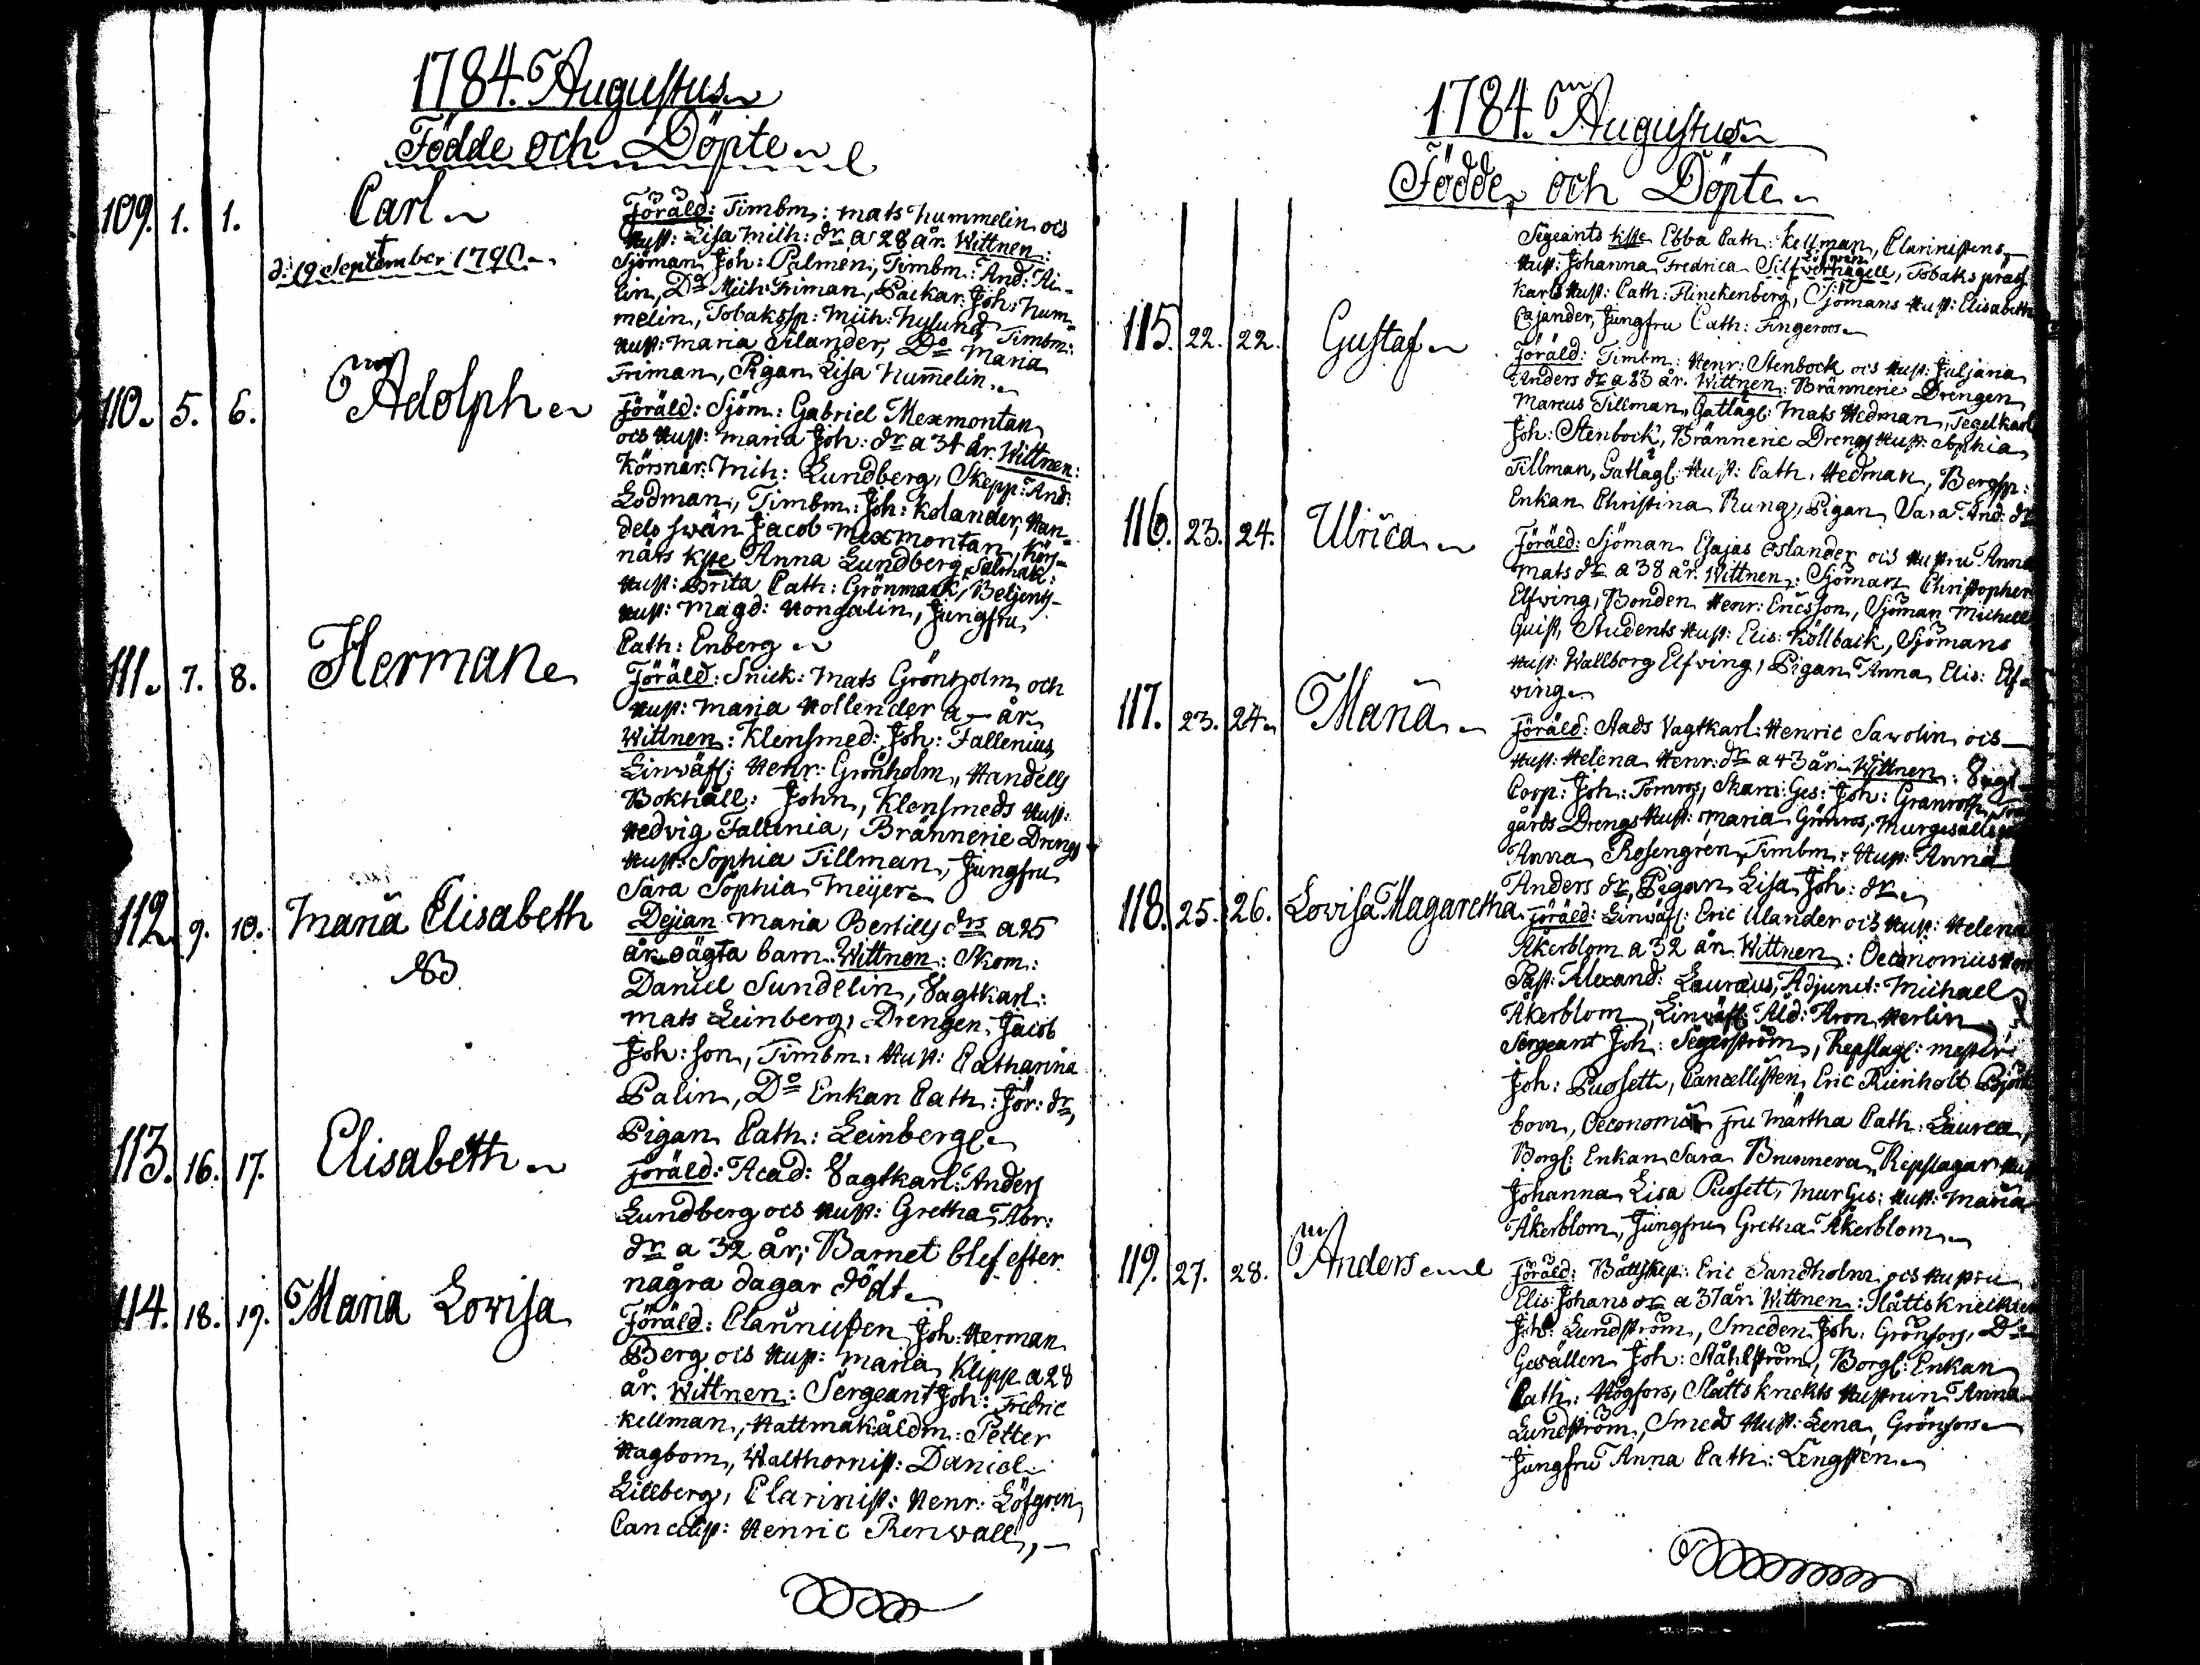 1784. Augustus
Födde och Döpte
109. 1. 1. Carl
d. 19 September 1790.
Föräld: Timbm: Mats Hummelin och
Hust: Lisa Mich: dr a 28 år. Wittnen:
Sjöman Joh: Palmen, Timbm: And: Ai-
lin, Do Mich: Friman, Packar: Joh: Hum-
melin, Tobakssp: Mich: Nylund Timbm:
Hust: Maria Silander, Do Maria
Friman, Pigan Lisa Hum̄elin
110. 5. 6. Adolph
Föräld: Sjöm: Gabriel Mexmontan
och Hust: Maria Joh: dr a 34 år. Wittnen:
Körsnär: Mich: Lundberg, Skepp: And:
Lodman, Timbm: Joh: Kolander, Han-
dels swän Jacob Mexmontan, Körs-
närs Kste Anna Lundberg, Salmak:
Hust: Brita Cath: Grönmark, Betjents
Hust: Magd: Hongalin, Jungfru
Cath: Enberg
111. 7. 8. Herman
Föräld: Snick: Mats Grönholm och
Hust: Maria Hollender a — år
Wittnen: Klensmed: Joh: Fallenius,
Linwäfl: Henr: Grönholm, Handells
Bokhåll: John, Klensmeds Hust:
Hedvig Fallenia, Brännerie Drengs
Hust: Sophia Tillman, Jungfru
Sara Sophia Meijer
112. 9. 10. Maria Elisabeth
NB
Dejian Maria Bertills drs a 25
år oägta barn. Wittnen: Skom:
Daniel Sundelin, Vagtkarl:
Mats Leinberg, Drengen Jacob
Joh: son, Timbm: Hust: Catharina
Palin, Do Enkan Cath: Jör: dr,
Pigan Cath: Leinberg
113. 16. 17. Elisabeth
Föräld: Acad: Vagtkarl: Anders
Lundberg och Hust: Gretha Abr:
dr a 32 år; Barnet blef efter
några dagar dödt
114. 18. 19. Maria Lovisa
Föräld: Clarinisten Joh: Herman
Berg och Hust: Maria Klipp a 28
år. Wittnen: Sergeant Joh: Fredric
Kellman, Hattmakåldm: Petter
Hagbom, Walthornist: Daniel
Lillberg, Clarinist: Henr: Löfgren,
Cancelist: Henric Renwall,
1784. Augustus
Födde och Döpte
Sergeants Kste Ebba Cath: Kellman, Clarinistens
Hust: Johanna Fredrica Silfvernagell, Tobaks
Karls Hust: Cath: Flinckenberg, Sjömans Hust: Elisabeth
Cajander, Jungfru Cath: Fingeroos
115. 22. 22. Gustaf
Föräld: Timbm: Henr: Stenbock och Hust: Juliana
Anders dr a 23 år. Wittnen: Brännerie Drengen
Marcus Tillman, Gatlägl: Mats Hedman, Tegelkarl
Joh: Stenbock, Brännerie Drengs Hust: Sophia
Tillman, Gatlägl: Hust: Cath: Hedman, Bergsp:
Enkan Christina Rung, Pigan Sara And: dr
116. 23. 24. Ulrica
Föräld: Sjöman Esajas Oslander och Hustru Anna
Mats dr a 38 år. Wittnen: Sjöman Christopher
Elfwing, Bonden Henr: Ericsson, Sjöman Michell
Quist, Students Hust: Elis: Kollback, Sjömans
Hust: Wallborg Elfving, Pigan Anna Elis: Elf-
wing
117. 23. 24. Maria
Föräld: Stads Vagtkarl: Henric Sawolin och
Hust: Helena Henr: dr a 43 år. Wittnen: Vagt
Corp: Joh: Tömros, Skarri Ges: Joh: Granroth,
gårds Drengs Hust: Maria Grönros, Murgesälls
Anna Rosengrén, Timbm: Hust: Anna
Anders dr, Pigan Lisa Joh: dr
118. 25. 26. Lovisa Magaretha
Föräld: Linwäfl: Eric Ulander och Hust: Helena
Åkerblom a 32 år. Wittnen: Oeconomius
Past: Alexand: Lauræus, Adjunct: Michael
Åkerblom, Linwäfl: Åld: Aron Herlin,
Sergeant Joh: Segerström, Repslag: mester
Joh: Pussett, Cancellisten Eric Rienholt Björk
bom, Oeconomiæ Fru Märtha Cath: Laurea,
Borgl: Enkan Sara Brunnera, Repslagar Hust
Johanna Lisa Pussett, Mur Ges: Hust: Maria
Åkerblom, Jungfru Gretha Åkerblom
119. 27. 28. Anders
Föräld: Båttskep: Eric Sandholm och Hustru
Elis: Johans dr a 37 år. Wittnen: Slåttsknekten
Joh: Lundström, Smeden Joh: Grönfors, Do
Gesällen Joh: Ståhlström, Borgl: Enkan
Cath: Högfors, Slåttsknekts Hustrun Anna
Lundström, Smeds Hust: Lena Grönfors
Jungfru Anna Cath: Lengsten